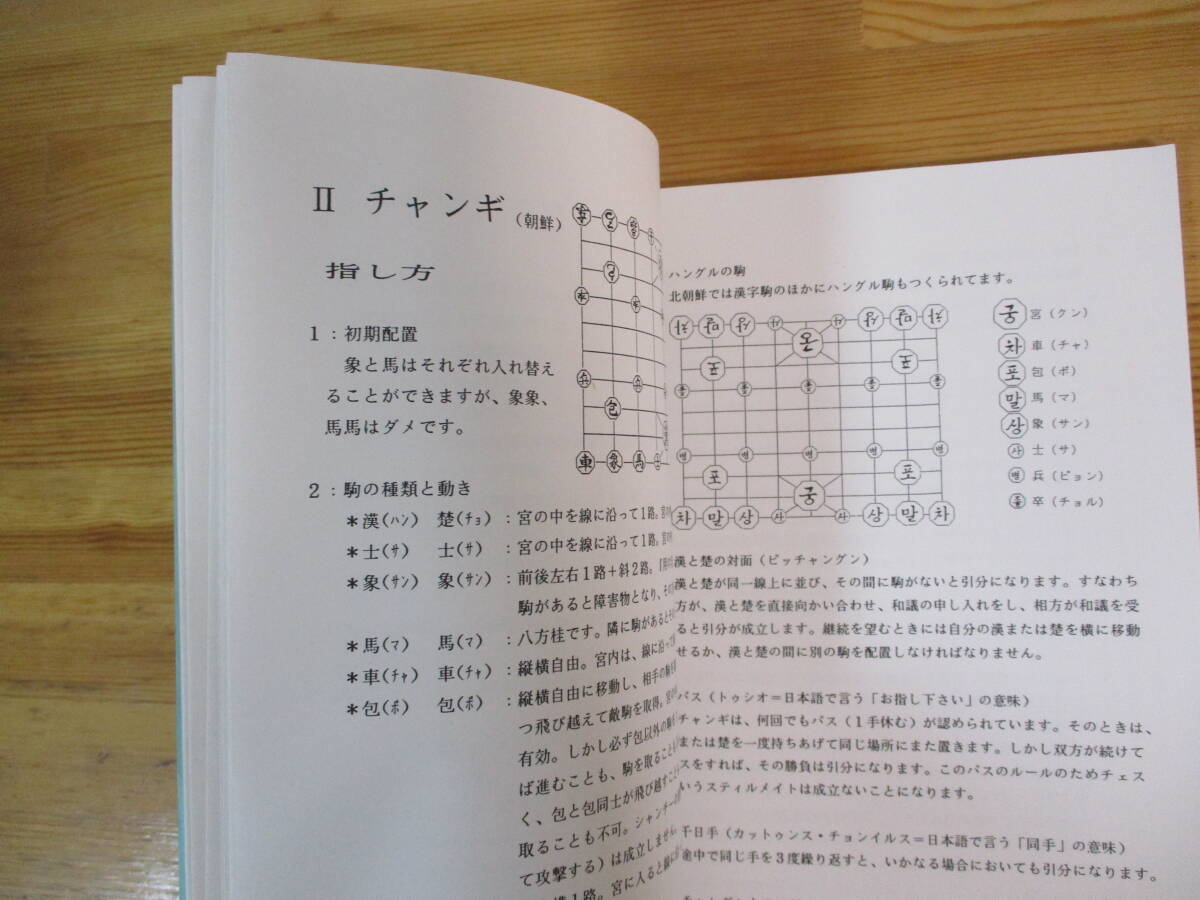 Ⅱ チャンギ(朝鮮)
指し方
1:初期配置
象と馬はそれぞれ入れ替え
ることができますが、象象、
馬馬はダメです。
2:駒の種類と動き
*漢(ハン) 楚(チョ):宮の中を線に沿って1路。
*士(サ) 士(サ):宮の中を線に沿って1路。
*象(サン) 象(サン):前後左右1路+斜2路。
駒があると障害物となり、
*馬(マ) 馬(マ):八方桂です。隣に駒があると
*車(チャ) 車(チャ):縦横自由。宮内は、線に沿って
*包(ポ) 包(ポ):縦横自由に移動し、相手の駒を
つ飛び越えて敵駒を取得。
有効。しかし必ず包以外の駒
ば進むことも、駒を取ることも
く、包と包同士が飛び越すこと
取ることも不可。シャンチー
て攻撃する)は成立しません
進1路。宮に入ると線に
車 象 馬
包
兵
ハングルの駒
北朝鮮では漢字駒のほかにハングル駒もつくられてます。
차 말 상 사 사 상 말 차
온
포 포
졸 졸 졸 졸 졸
병 병 병 병 병
포 궁 포
차 말 상 사 사 상 말 차
궁 宮(クン)
차 車(チャ)
포 包(ポ)
말 馬(マ)
상 象(サン)
사 士(サ)
병 兵(ピョン)
졸 卒(チョル)
漢と楚の対面(ピッチャングン)
漢と楚が同一線上に並び、その間に駒がないと引分になります。すなわち
方が、漢と楚を直接向かい合わせ、和議の申し入れをし、相方が和議を受
ると引分が成立します。継続を望むときには自分の漢または楚を横に移動
せるか、漢と楚の間に別の駒を配置しなければなりません。
パス(トゥシオ=日本語で言う「お指し下さい」の意味)
チャンギは、何回でもパス(1手休む)が認められています。そのときは、
または楚を一度持ちあげて同じ場所にまた置きます。しかし双方が続けて
スをすれば、その勝負は引分になります。このパスのルールのためチェス
いうスティルメイトは成立ないことになります。
千日手(カットゥンス・チョンイルス=日本語で言う「同手」の意味)
途中で同じ手を3度繰り返すと、いかなる場合においても引分になります。